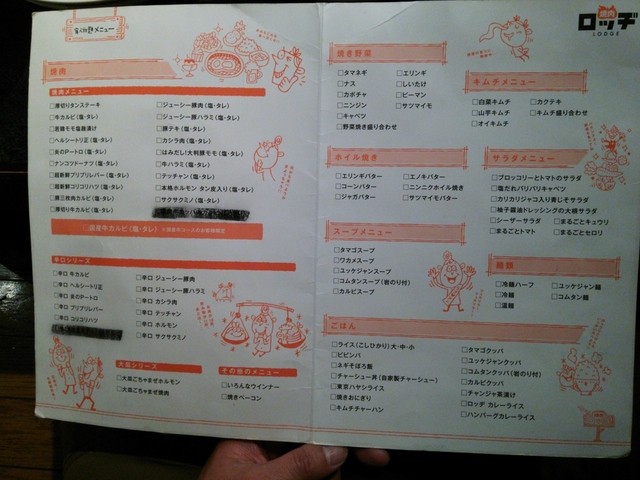 食べ放題メニュー
焼肉
ロッヂ
LODGE
焼肉
焼肉メニュー
□厚切りタンステーキ
□牛カルビ(塩・タレ)
□若鶏モモ塩麹漬け
□ヘルシートリ正(塩・タレ)
□炎のPートロ(塩・タレ)
□ナンコツドーナツ(塩・タレ)
□超新鮮プリプリレバー(塩・タレ)
□超新鮮コリコリハツ(塩・タレ)
□豚三枚肉カルビ(塩・タレ)
□厚切り牛カルビ(塩・タレ)
□ジューシー豚肉(塩・タレ)
□ジューシー豚ハラミ(塩・タレ)
□豚テキ(塩・タレ)
□カシラ肉(塩・タレ)
□はみだし大判豚モモ(塩・タレ)
□牛ハラミ(塩・タレ)
□テッチャン(塩・タレ)
□本格ホルモン タン皮入り(塩・タレ)
□サクサクミノ(塩・タレ)
□国産牛カルビ(塩・タレ)
辛口シリーズ
□辛口 牛カルビ
□辛口 ヘルシートリ正
□辛口 炎のPートロ
□辛口 プリプリレバー
□辛口 コリコリハツ
□辛口 ジューシー豚肉
□辛口 ジューシー豚ハラミ
□辛口 カシラ肉
□辛口 テッチャン
□辛口 ホルモン
□辛口 サクサクミノ
大皿シリーズ
□大皿ごちゃまぜホルモン
□大皿ごちゃまぜ焼肉
その他のメニュー
□いろんなウインナー
□焼きベーコン
焼き野菜
□タマネギ
□ナス
□カボチャ
□ニンジン
□キャベツ
□野菜焼き盛り合わせ
□エリンギ
□しいたけ
□ピーマン
□サツマイモ
キムチメニュー
□白菜キムチ
□山芋キムチ
□オイキムチ
□カクテキ
□キムチ盛り合わせ
ホイル焼き
□エリンギバター
□コーンバター
□ジャガバター
□エノキバター
□ニンニクホイル焼き
□サツマイモバター
サラダメニュー
□ブロッコリーとトマトのサラダ
□塩だれパリパリキャベツ
□カリカリジャコ入り青じそサラダ
□柚子醤油ドレッシングの大根サラダ
□シーザーサラダ
□まるごとトマト
□まるごとキュウリ
□まるごとセロリ
スープメニュー
□タマゴスープ
□ワカメスープ
□ユッケジャンスープ
□コムタンスープ(岩のり付)
□カルビスープ
麺類
□冷麺ハーフ
□冷麺
□温麺
□ユッケジャン麺
□コムタン麺
ごはん
□ライス(こしひかり)大・中・小
□ビビンバ
□ネギそぼろ飯
□チャーシュー丼(自家製チャーシュー)
□東京ハヤシライス
□焼きおにぎり
□キムチチャーハン
□タマゴクッパ
□ユッケジャンクッパ
□コムタンクッパ(岩のり付)
□カルビクッパ
□チャンジャ茶漬け
□ロッヂ カレーライス
□ハンバーグカレーライス